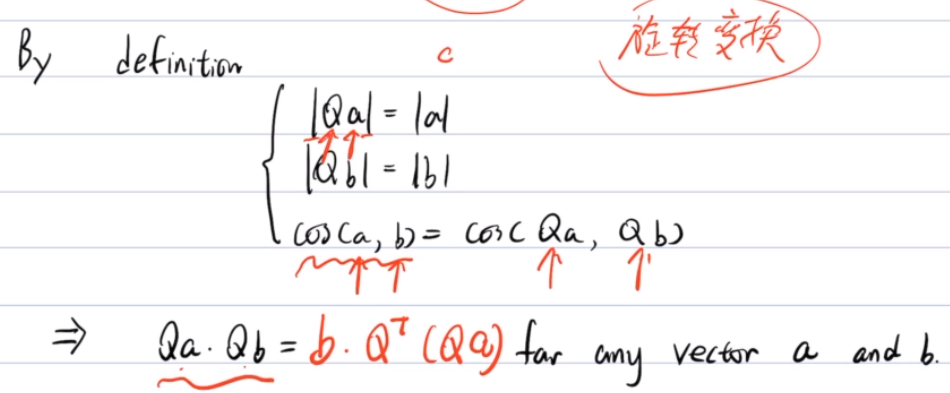 旋转变换
By definition c
|Qa| = |a|
|Qb| = |b|
cos(a, b) = cos(Qa, Qb)
⇒ Qa · Qb = b · Qᵀ (Qa) for any vector a and b.